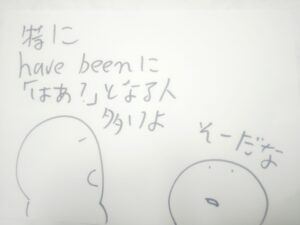 特に
have beenに
「はあ?」となる人
多いよ
そーだな